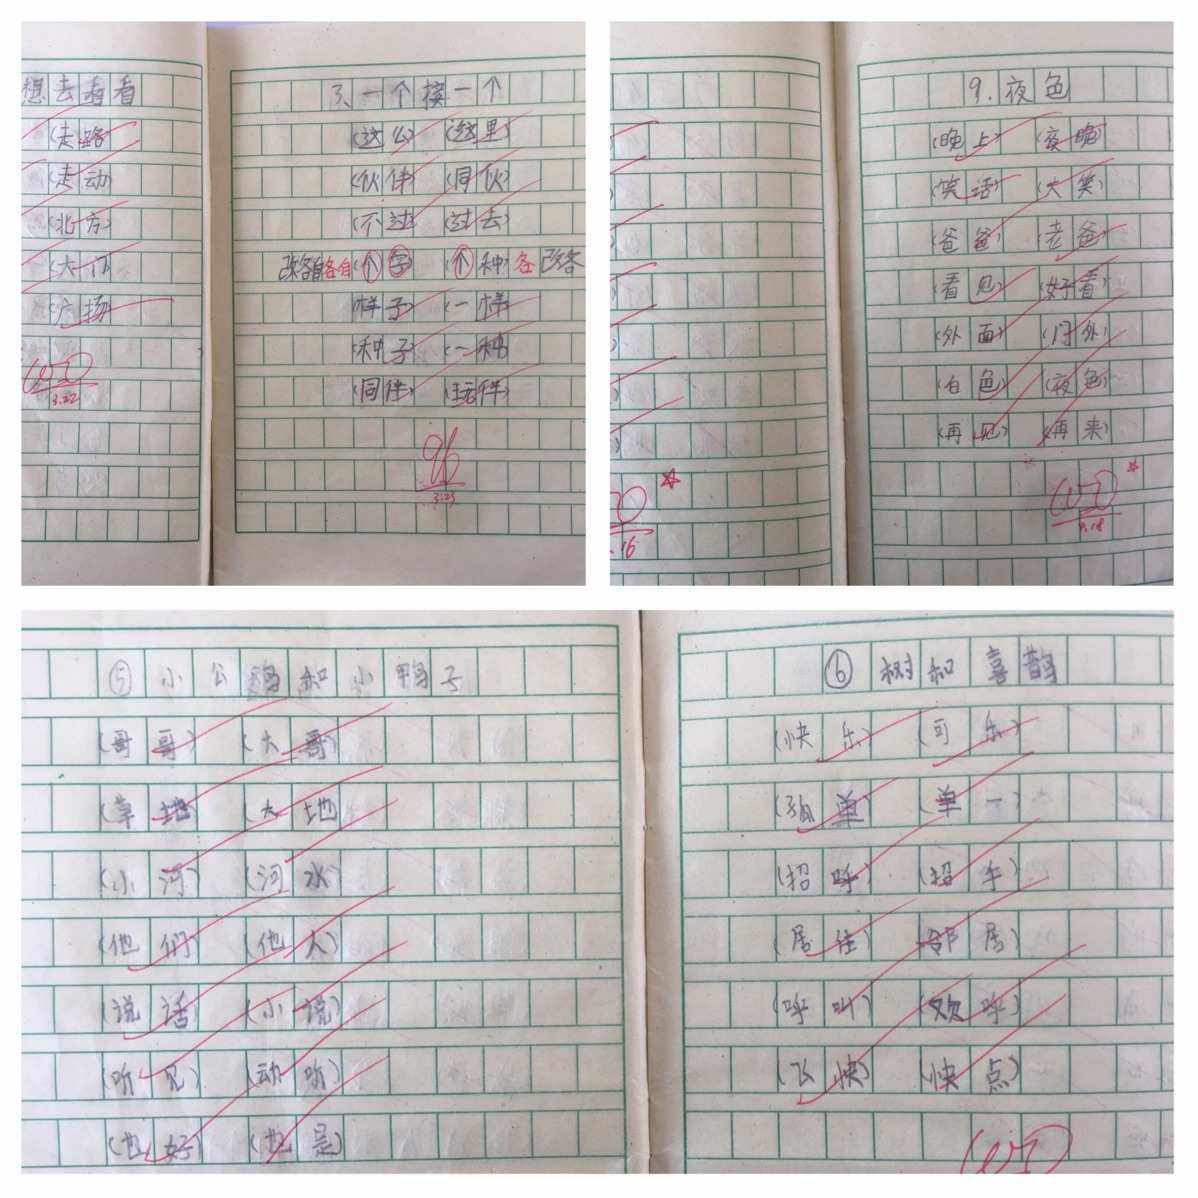 想去看看
(走路)
(走动)
(北方)
(大门
(广场)
100
3.22
3、一个接一个
(这么) (这里)
(伙伴) (同伙)
(不过) (过去)
改各自各自(个字 (个种)各 改各
(样子) (一样)
(种子) (一种)
(同伴) (玩伴)
96
3.23
.16
9.夜色
(晚上) (夜晚)
(笑话) (大笑)
(爸爸) (老爸)
(看见) (好看)
(外面) (门外)
(白色) (夜色)
(再见) (再来)
100
9.18
⑤小公鸡和小鸭子
(哥哥) (大哥)
(草地) (大地)
(小河) (河水)
(他们) (他人)
(说话) (小说)
(听见) (动听)
(也好) (也是)
⑥树和喜鹊
(快乐) (可乐)
(孤单) (单一)
(招呼) (招手)
(居住) (邻居)
(呼叫) (欢呼)
(飞快) (快点)
100